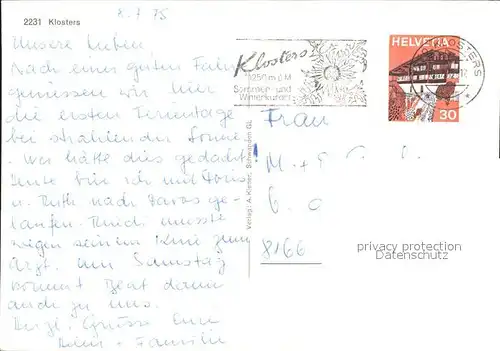 8.7.75
2231 Klosters
Unsere Lieben,
Nach einer guten Fahrt
geniessen wir hier
die ersten Ferientage
bei strahlender Sonne
. Wer hätte dies gedacht
Heute bin ich mit Doris
u. Ruth nach Davos ge-
laufen. Ruedi musste
wegen seinem Knie zum
Arzt. Am Samstag
kommt Beat dann
auch zu uns.
Herzl. Grüsse Eure
+ Familie
Klosters
1250 m ü M
Sommer- und
Winterkurort
HELVETIA
30
KLOSTERS
Verlag: A. Kleiner, Schwanden GL
Frau
M
8166
privacy protection
Datenschutz